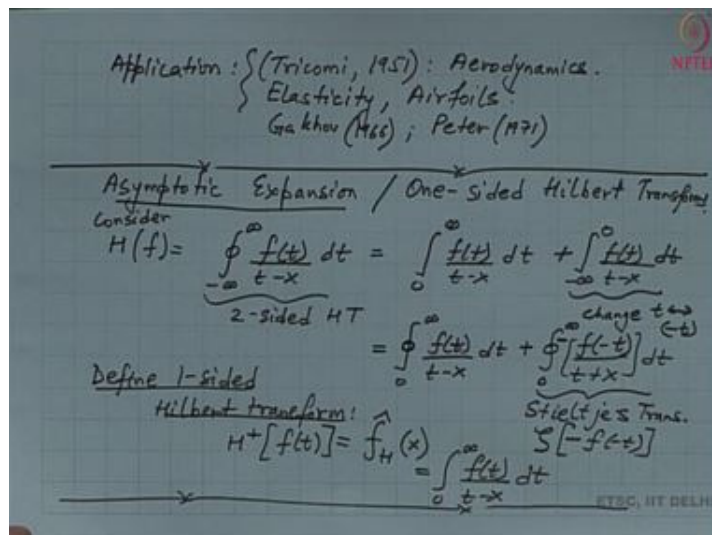 NPTEL
Application : { (Tricomi, 1951) : Aerodynamics.
Elasticity, Airfoils.
Gakhov (1966) ; Peter (1971)
Asymptotic Expansion / One-sided Hilbert Transform
Consider
H(f) = ∮_{-∞}^{∞} f(t)/(t-x) dt = ∫_0^∞ f(t)/(t-x) dt + ∫_{-∞}^0 f(t)/(t-x) dt
2-sided HT
change t ↔ (-t)
= ∮_0^∞ f(t)/(t-x) dt + ∮_0^∞ [-f(-t)/(t+x)] dt
Define 1-sided
Hilbert transform:
Stieltjes Trans.
H⁺[f(t)] = f̂_H(x)
S[-f(-t)]
= ∫_0^∞ f(t)/(t-x) dt
ETSC, IIT DELHI